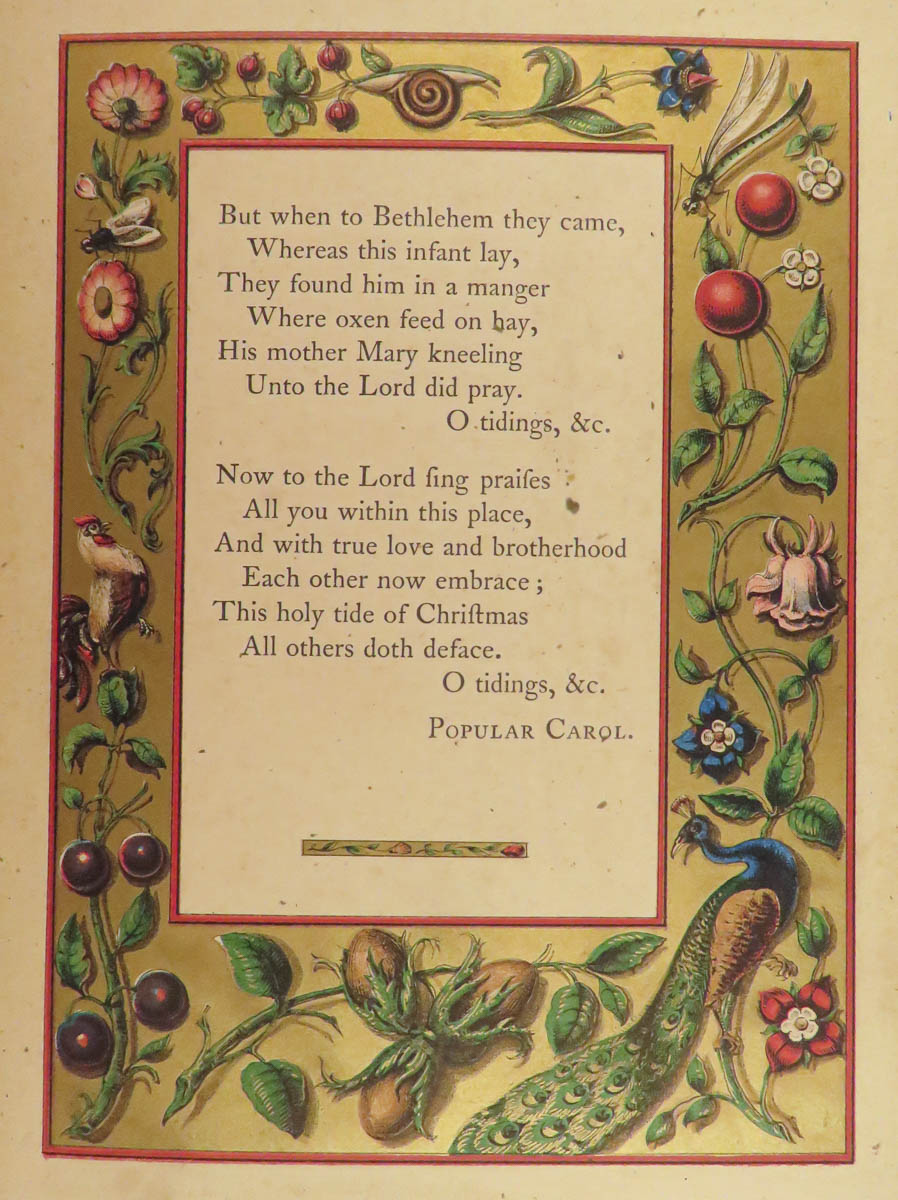 But when to Bethlehem they came,
Whereas this infant lay,
They found him in a manger
Where oxen feed on hay,
His mother Mary kneeling
Unto the Lord did pray.
O tidings, &c.
Now to the Lord ſing praiſes
All you within this place,
And with true love and brotherhood
Each other now embrace ;
This holy tide of Chriſtmas
All others doth deface.
O tidings, &c.
POPULAR CAROL.